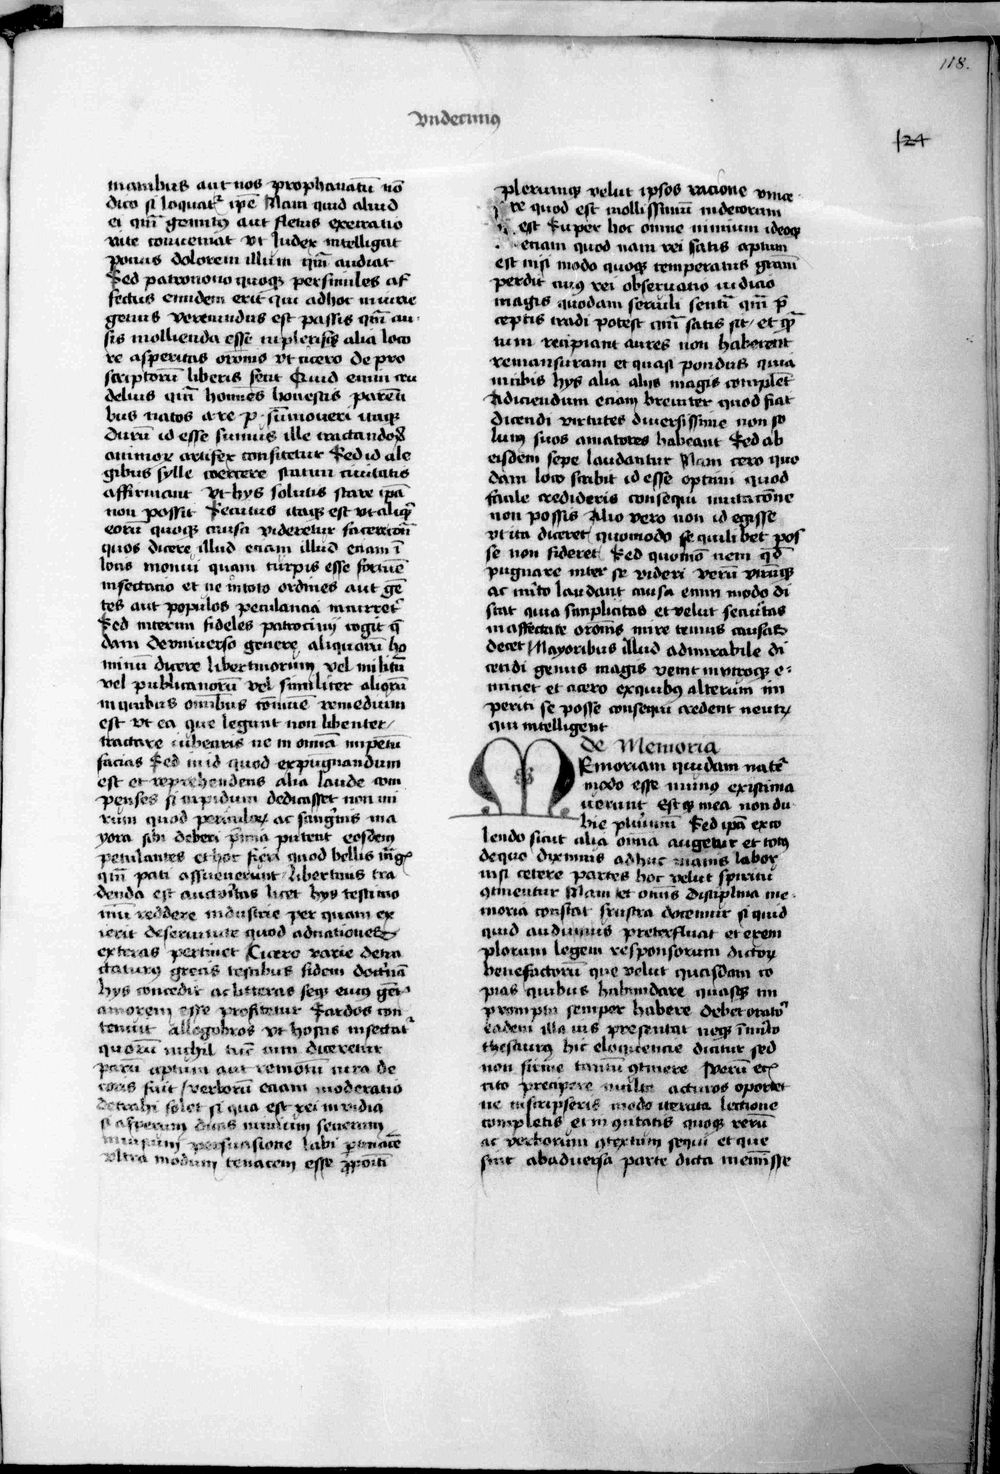 118.
undecimus
124
manibus aut nos prophanatū nō
dico si loquat᷑ ipē Nam quid aliud
ei qm̄ gemitus aut fletus execratio
vite conveniat vt Iudex intelligat
potius dolorem illum qm̄ audiat
Sed patronono quoqꝫ persimiles af
fectus eiusdem erit qui adhoc iniurie
genus verecundus est passis qm̄ au
sis mollienda esse inplerisqꝫ alia loco
re asperitas orōnis vt cicero de pro
scriptorū liberis fecit Quid enim cru
delius qm̄ homines honestis paren
bus natos a re p sūmoueri itaqꝫ
Durū id esse sumus ille tractandoꝝ
animor artifex confitetur Sed id ale
gibus sylle coercere statum ciuitatis
affirmant vt hys solutis stare ipā
non possit Secutus itaqꝫ est vt aliq̄
eorū quoqꝫ causa videretur facere cōtra
quos dicere illud etiam illud etiam ī
locis monui quam turpis esse fortune
insectatio et ne intoto ordines aut gē
tes aut populos petulantia incurret᷑
Sed interim fideles patrocinij cogit q̄
dam deuniuerso genere aliquarū ho
minū dicere libertinorum vel militū
vel publicanorū vel similiter aliorū
inquibus omībus cōmūe remedium
est vt ea que legunt non libenter
tractare iubearis ne in omnia impetū
facias Sed in id quod expugnandum
est et reprehendens alia laude com
penses si cupidum dedicasset non mi
rum quod periculoꝝ ac sanguīs ma
yora sibi deberi premia putent eosdem
petulantes et hoc fieri quod bellis mag᷑
qm̄ pati assueuerunt libertinis tra
denda est auctoritas licet hys testimo
nui reddere industrie per quam ex
ierit deseruitute quod adnationes
exteras pertinet Cicero varie detra
ctaturꝰ grecis testibus fidem doctrinā
hys concedit ac litteras seqꝫ eiusꝰ gētis
amorem esse profitetur Sardos con
tenuit allogobros vt hostis insectat᷑
quorū nichil tūc cum diceretur
parū aptum aut remotū cura de
coris fuit verborū etiam moderatio
detrahi solet si qua est rei inuidia
si asperum dicas nimium seuerum
iniustum persuasione labi ꝑtinacē
vltra modum tenacem esse ꝓpositi
plerumqꝫ velut ipsos racione vince
re quod est mollissimū indecorum
est Super hoc omne nimium ideoqꝫ
etiam quod nam rei satis aptum
est nisi modo quoqꝫ temperatus gratiā
perdit cuiꝰ rei obseruatio iudicio
magis quodam seruili sentiri qm̄ p̄
ceptis tradi potest qm̄ satis sit et q̄
tum recipiant aures non haberent
remansuram et quasi pondus quia
incibis hys alia alijs magis complet
Adiciendum etiam breuiter quod fiat
dicendi virtutes diuersissime non so
lum suos amatores habeant Sed ab
eisdem sepe laudantur Nam cero quo
dam loco scribit id esse optimi quod
facile credideris consequi imitacōne
non possis Alio vero non id egisse
vt ita diceret quomodo se quilibet pos
se non fideret Sed quomō nem qd̄
pugnare inter se videri verū vtrūqꝫ
ac mito laudant causa enim modo di
stat quia simplicitas et velut securitas
inaffectate orōnis mire tenuis causas
decet Mayoribus illud admirabile di
cendi genus magis venit invtroqꝫ e
minet et cicero exquibꝰ alterum im
periti se posse consequi credent neutꝝ
qui intelligent
de Memoria
MEmoriam quidam nature
modo esse munꝰ existima
uerunt Estqꝫ mea non du
bie plurimū Sed ipā exco
lendo sicut alia omīa augetur et totꝰ
dequo diximus adhuc inanis labor
nisi cetere partes hoc velut spiritu
ꝯtinentur Nam et omīs disciplina me
moria constat frustra docemur si quid
quid audimus preterfluat et exem
plorum legem responsorum dictoꝝ
benefactorū que velut quasdam co
pias quibus habundare quasqꝫ im
promptu semper habere debet orato᷑
eadem illa uis presentat neqꝫ īmito
thesaurꝰ hic eloquencie dicitur sed
non firme tantū ꝯtinere Verū eciam
cito precipere multa acturos oportet
ne inscripseris modo iterata lectione
completis et in ꝯnitatis quoqꝫ rerū
ac verborum ꝯtextum sequi et que
sint abaduersa parte dicta meminisse